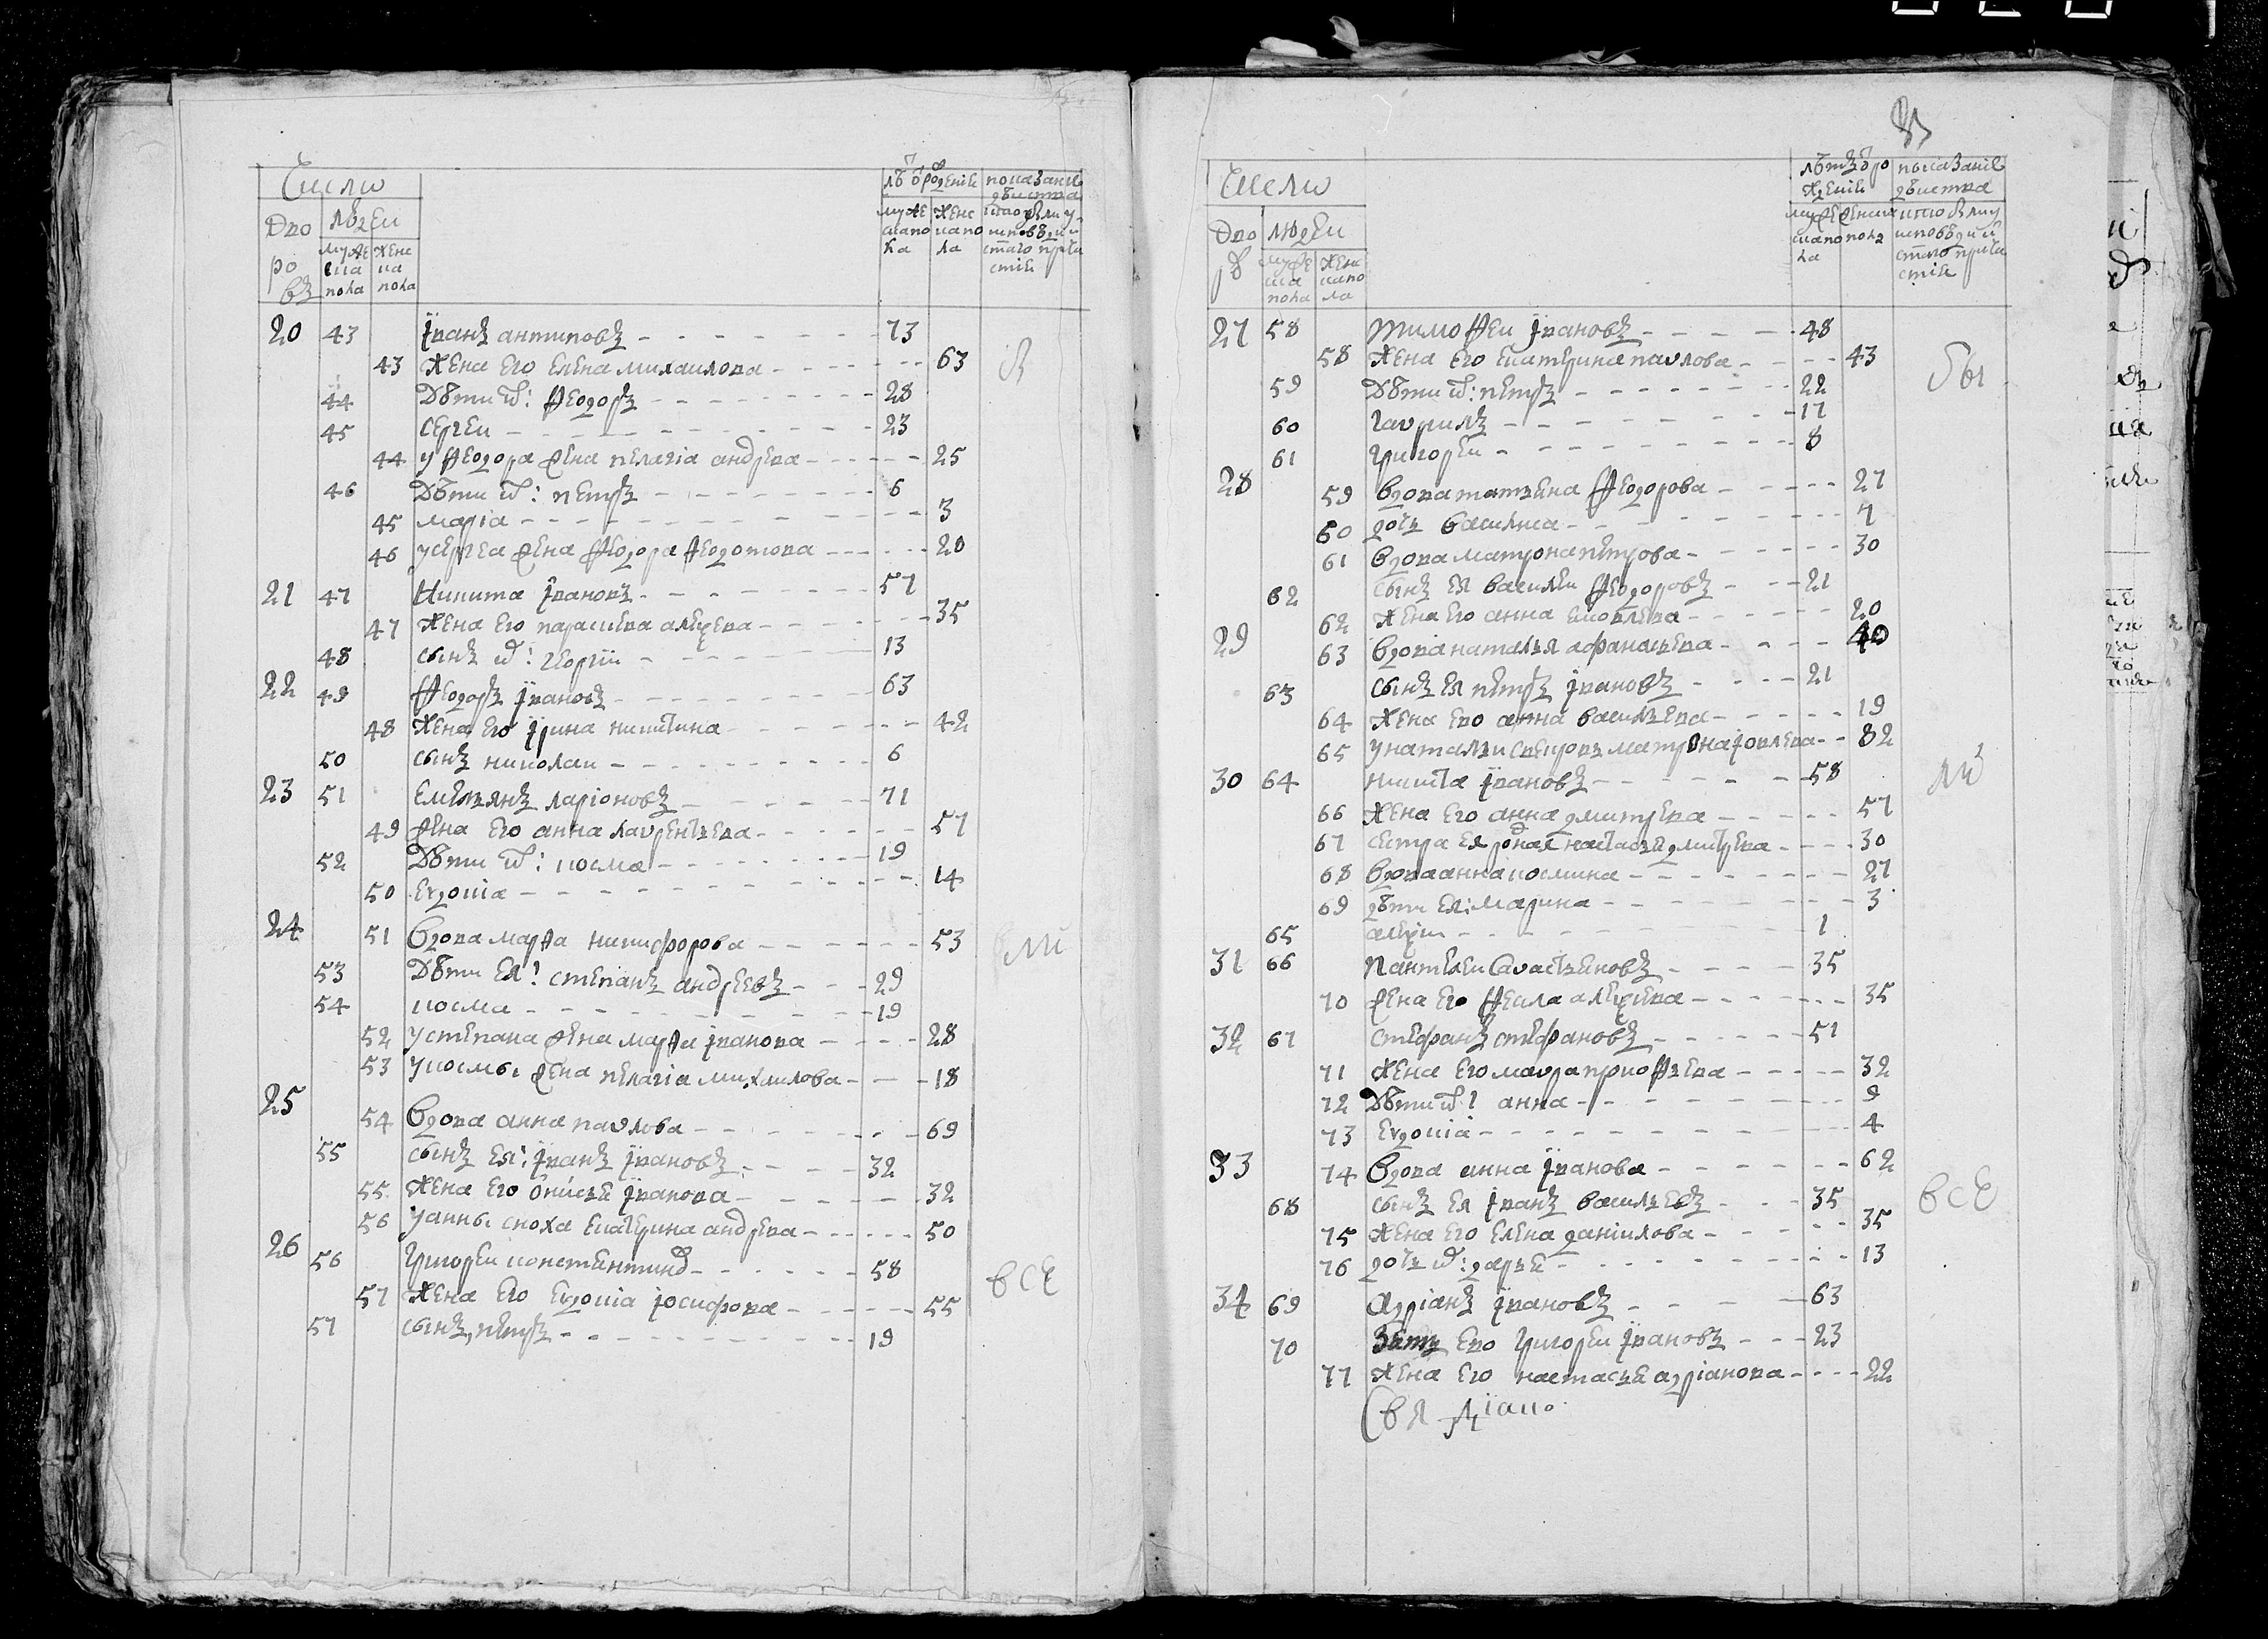 Число
Дворовъ
Людей
мужеска пола
женска пола
лѣ от рожденіѧ
мужескаго пола
женска пола
показаніе дѣиства
кто былъ у исповѣди и стаго причастіѧ
20 43 Їванъ антиповъ 73
43 жена его елена михаилова 63
44 Дѣти ѿ: Ѳеодоръ 28
45 сергеи 23
44 у Ѳеодора жена пелагіа андрева 25
46 Дѣти ѿ: петръ 6
45 маріа 3
46 усергеа жена Ѳеодора Ѳеодотова 20
21 47 Никита Ївановъ 57
47 жена его параскева алеѯева 35
48 сынъ ѿ: георгіи 13
22 49 Ѳеодоръ Ївановъ 63
48 жена его Їрина никитина 42
50 сынъ николаи 6
23 51 Емельянъ ларіоновъ 71
49 жена его анна лаѵрентьева 57
52 Дѣти ѿ: косма 19
50 Еѵдокіа 14
24 51 вдова марѲа никифорова 53
53 Дѣти ея: степанъ андреевъ 29
54 косма 19
52 устепана жена марѲа Їванова 28
53 укосмы жена пелагіа михаилова 18
25 54 вдова анна паѵлова 69
55 сынъ ея: Їванъ Ївановъ 32
55 жена его Онисья Їванова 32
56 уанны сноха екатерина андрева 50
26 56 Григореи констянтинов 58
57 жена его Еѵдокіа Їосифова 55
57 сынъ, петръ 19
в
ли
все
Число
Дворов
людеи
мужеска пола
женска пола
лѣтъ от рожденіѧ
мужескаго пола
женска пола
показаніе дѣиства
кто былъ у исповѣди и стаго причастіѧ
27 58 тимоѲеи Ївановъ 48
58 жена его екатерина паѵлова 43
59 Дѣти ѿ: петръ 22
60 гаѵрилъ 17
61 григореи 8
28 59 вдова татьяна Ѳеодорова 27
60 дочь василиса 7
61 вдова матрона петрова 30
62 сынъ ея василеи Ѳеодоровъ 21
62 жена его анна яковлева 20
29 63 вдова наталья афанасьева 40
63 сынъ ея петръ Ївановъ 21
64 жена ево анна васильева 19
65 унатальи свекровь матрона Їовлева 82
30 64 никита Ївановъ 58
66 жена его анна дмитрева 57
67 сестра ея родная настасья дмитрева 30
68 вдова анна космина 27
69 дѣти ея: марина 3
65 алеѯеи 1
31 66 Пантелеи Саѵастьяновъ 35
70 жена его Ѳекла алеѯиева 35
32 67 стефанъ стефановъ 51
71 жена его маѵра прокоѲьева 32
72 Дѣти ѿ: анна 9
73 Еѵдокіа 4
33 74 вдова анна Їванова 62
68 сынъ ея Їванъ васильевъ 35
75 жена его елена даніилова 35
76 дочь ѿ: дарья 13
34 69 адріанъ Ївановъ 63
70 Зять ево Григореи Ївановъ 23
77 жена его настасья адріанова 22
бы
лі
все